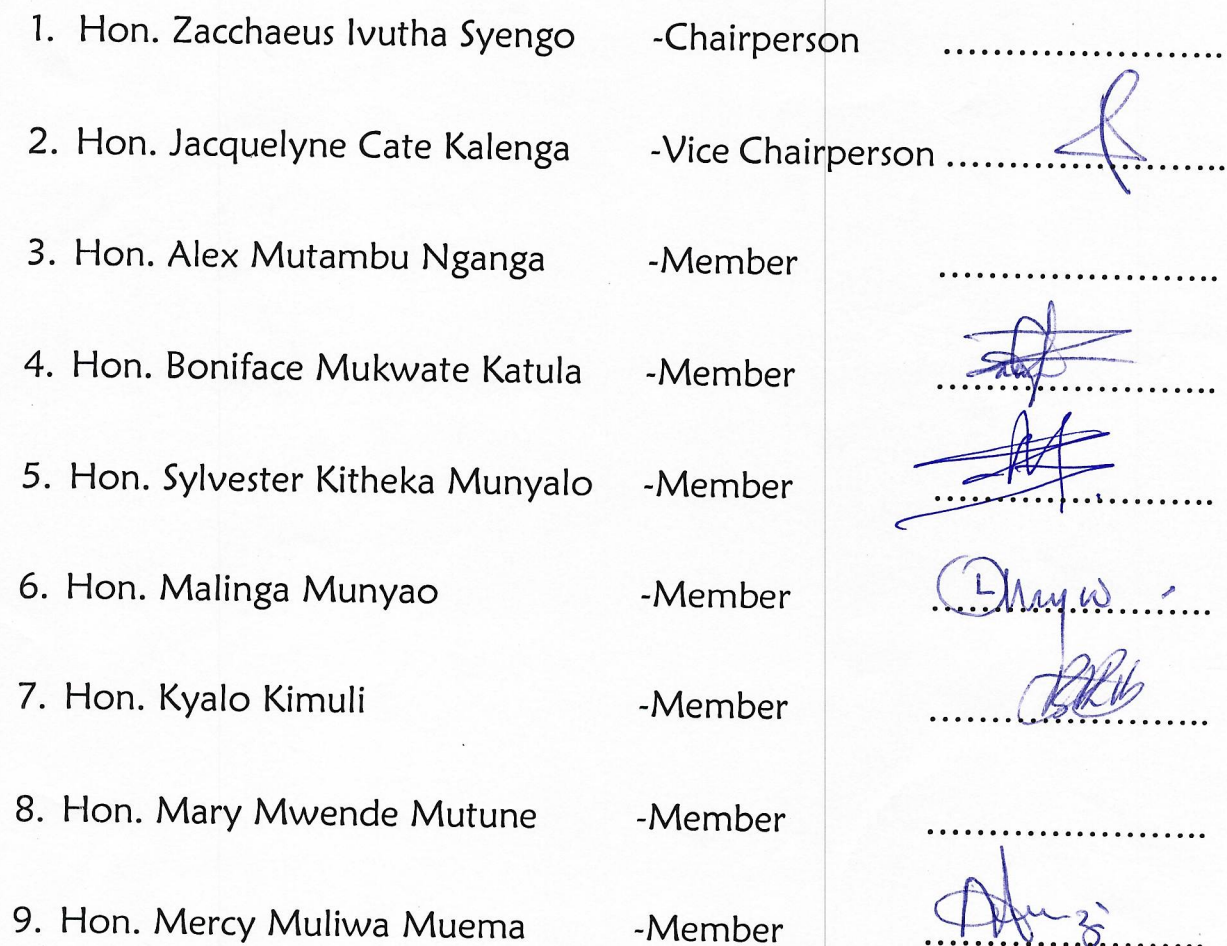 1. Hon. Zacchaeus Ivutha Syengo -Chairperson ............................
2. Hon. Jacquelyne Cate Kalenga -Vice Chairperson ............................
3. Hon. Alex Mutambu Nganga -Member ............................
4. Hon. Boniface Mukwate Katula -Member ............................
5. Hon. Sylvester Kitheka Munyalo -Member ............................
6. Hon. Malinga Munyao -Member ............................
7. Hon. Kyalo Kimuli -Member ............................
8. Hon. Mary Mwende Mutune -Member ............................
9. Hon. Mercy Muliwa Muema -Member ............................